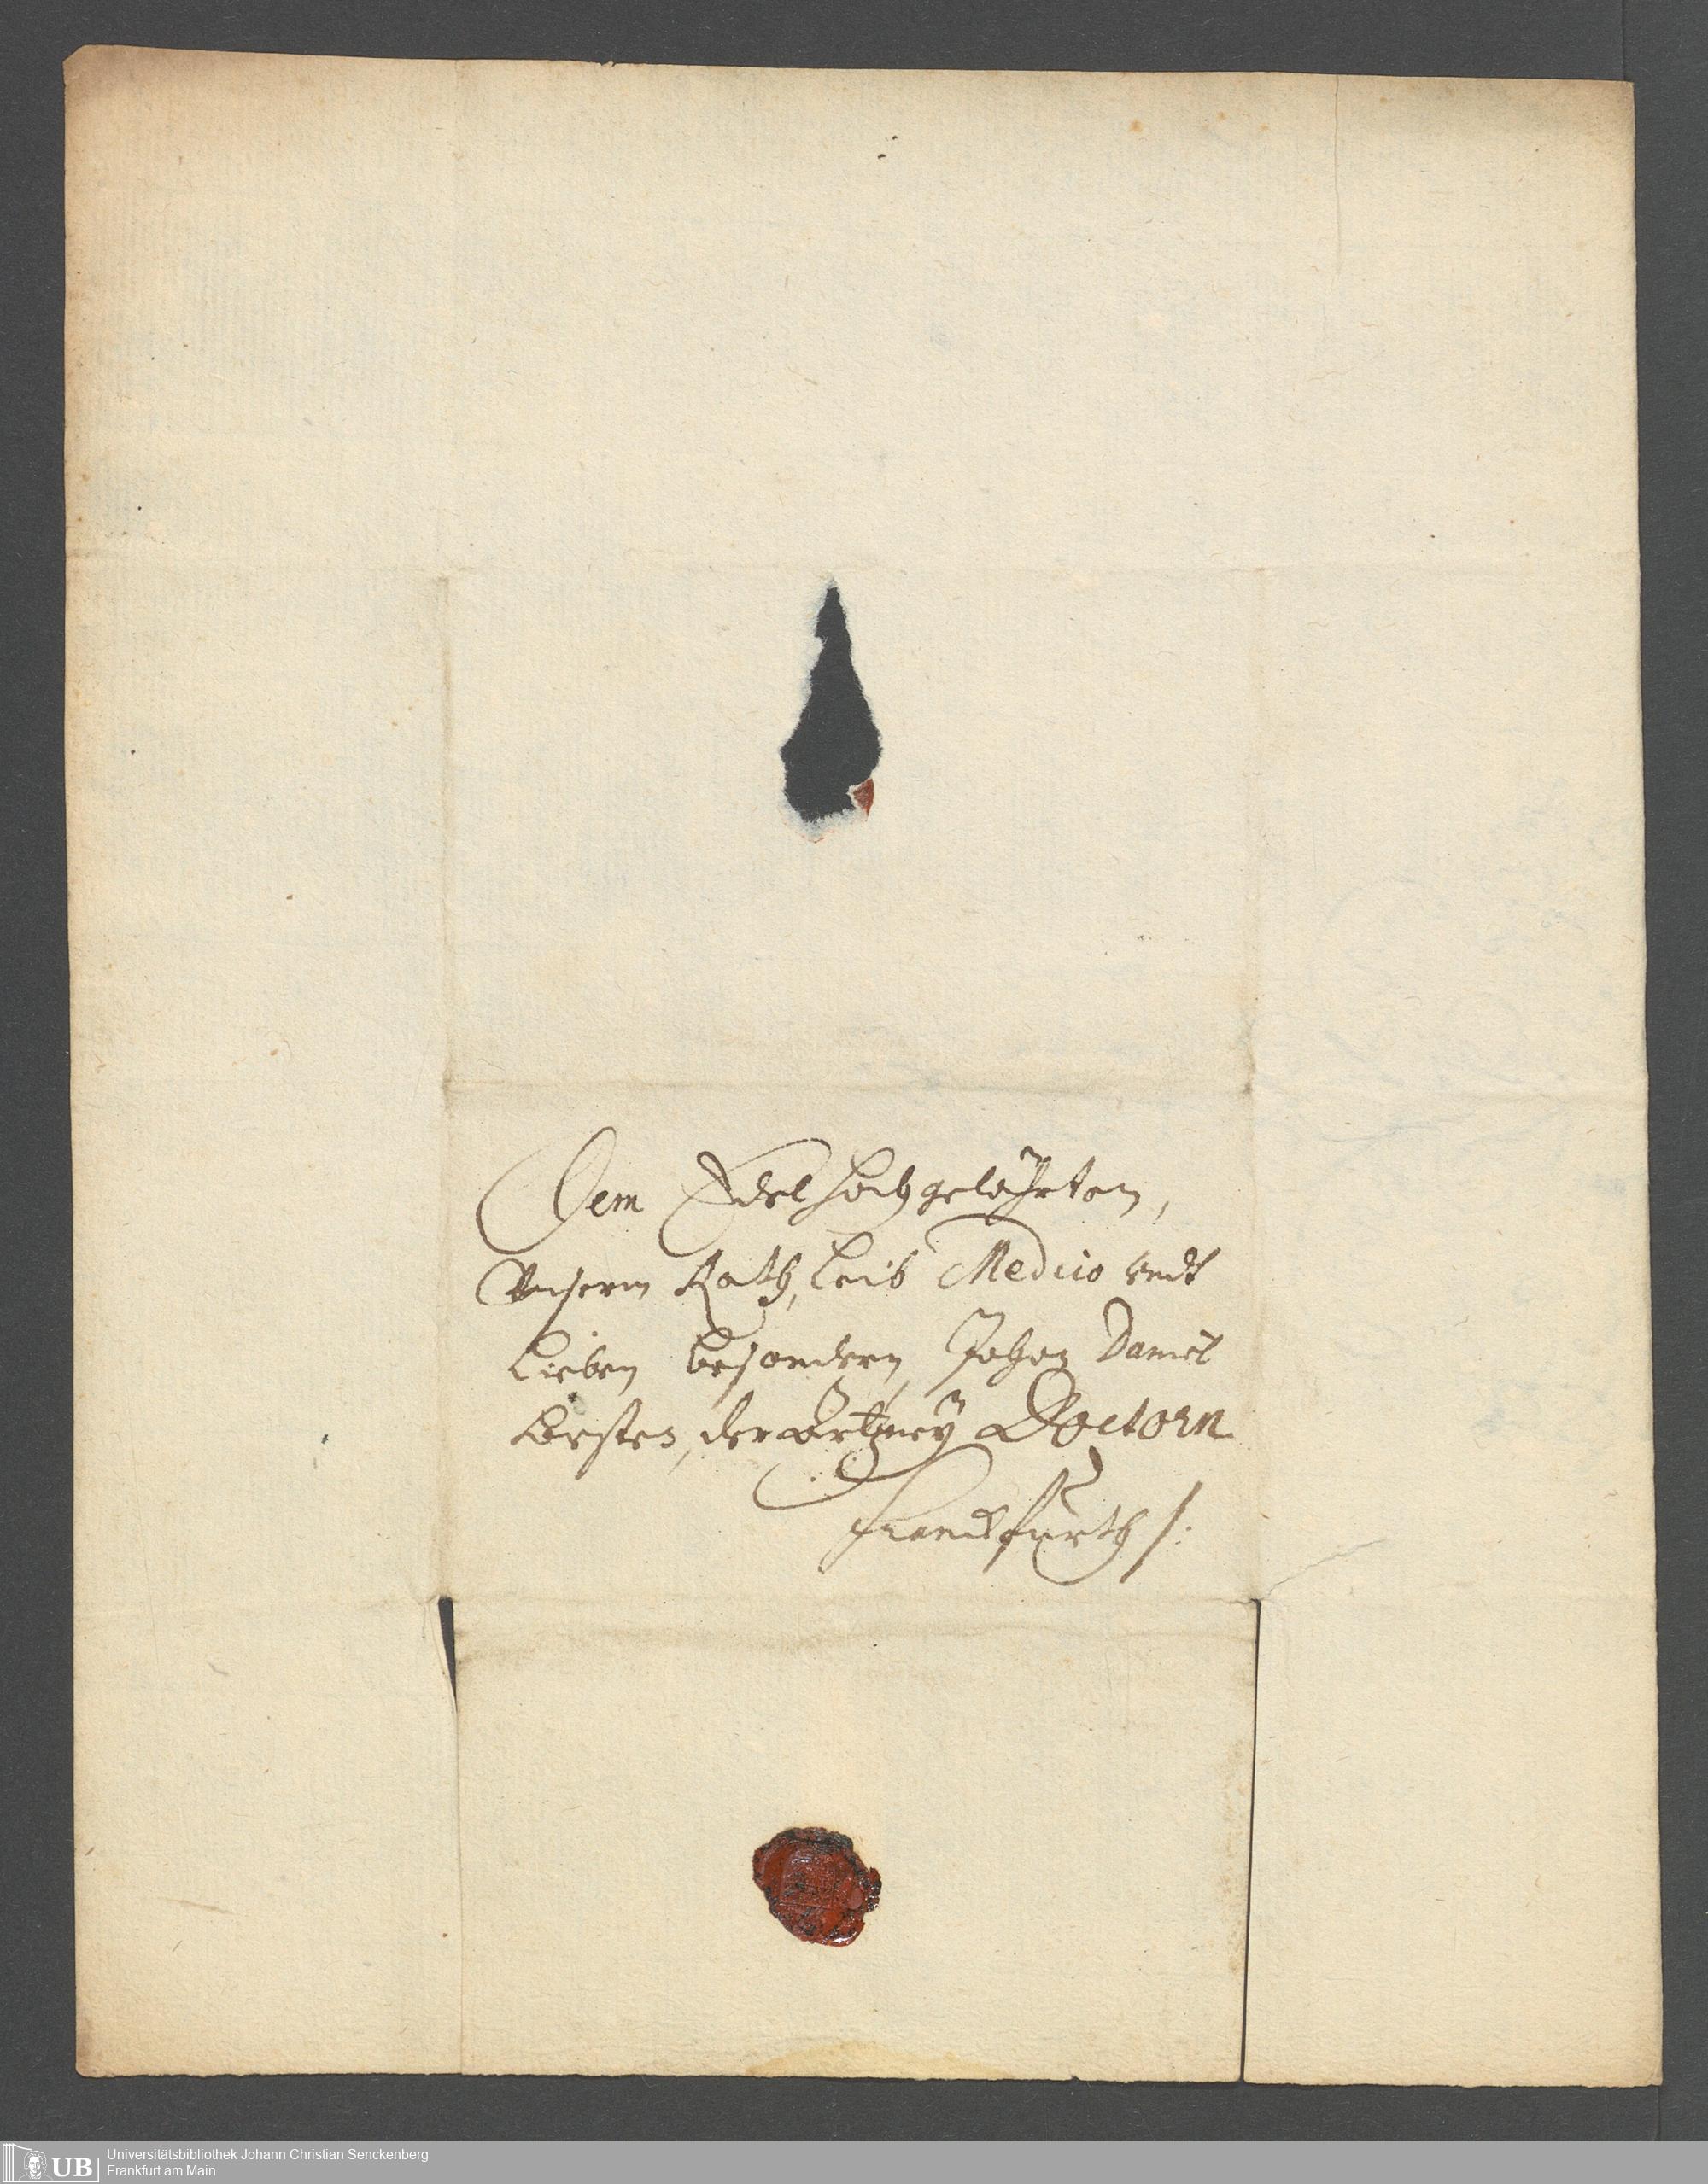 Dem Edel hochgelährten,
Vnserm Rath, Leib Medico vndt
Lieben besondern, Johan Daniel
Horsten, der Artzney Doctorn
Franckfurth /:
UB Universitätsbibliothek Johann Christian Senckenberg
Frankfurt am Main